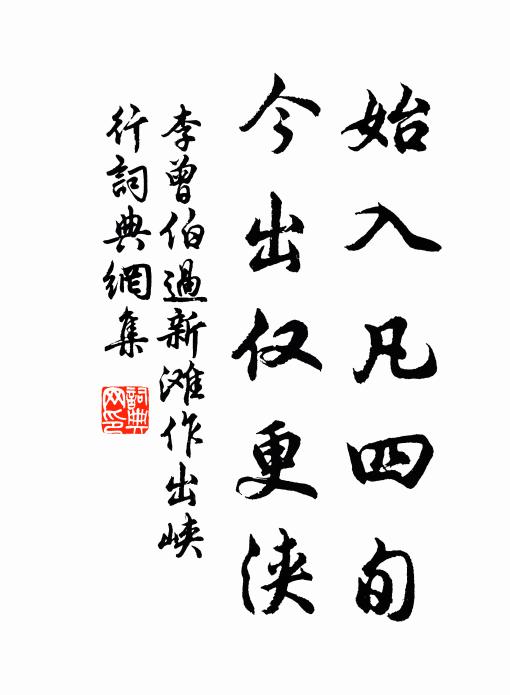 始入凡四旬
今出仅更浃
李曾伯過新滩作出峽
行詞典網集
詞典
网印